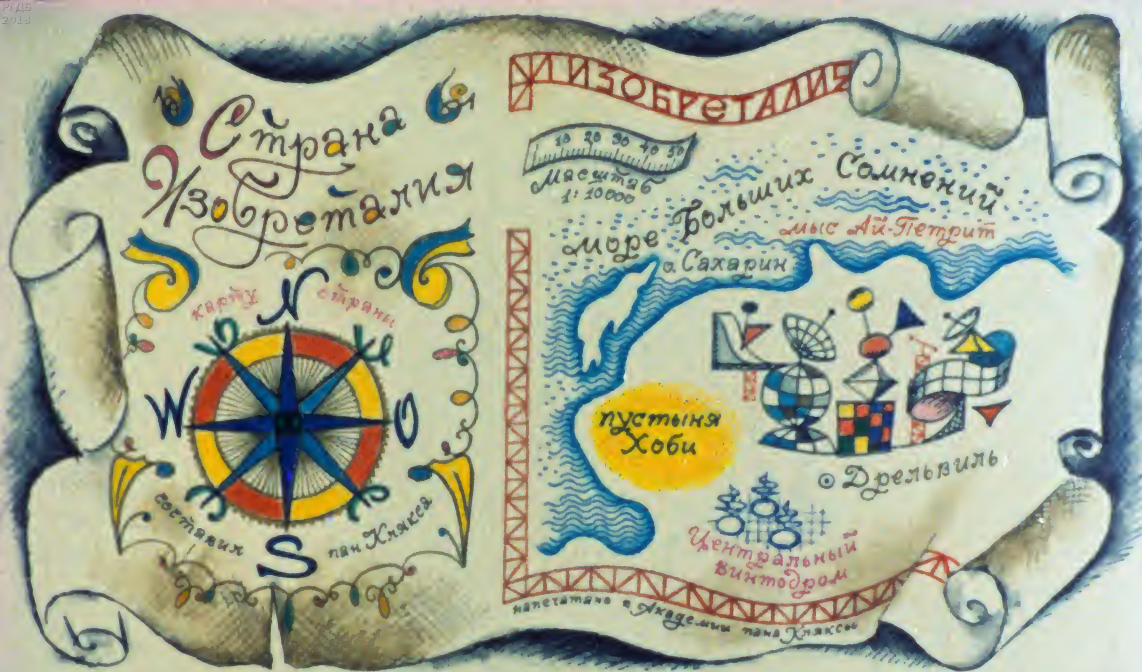 РГДБ
2013
Страна
Изобреталия
карту страны
N
W
O
S
составил пан Клякса
ИЗОБРЕТАЛИЯ
10 20 30 40 50
Масштаб
1:10000
море Больших Сомнений
мыс Ай-Петрит
о. Сахарин
пустыня
Хоби
Дрельвиль
Центральный
винтодром
напечатано в Академии пана Кляксы